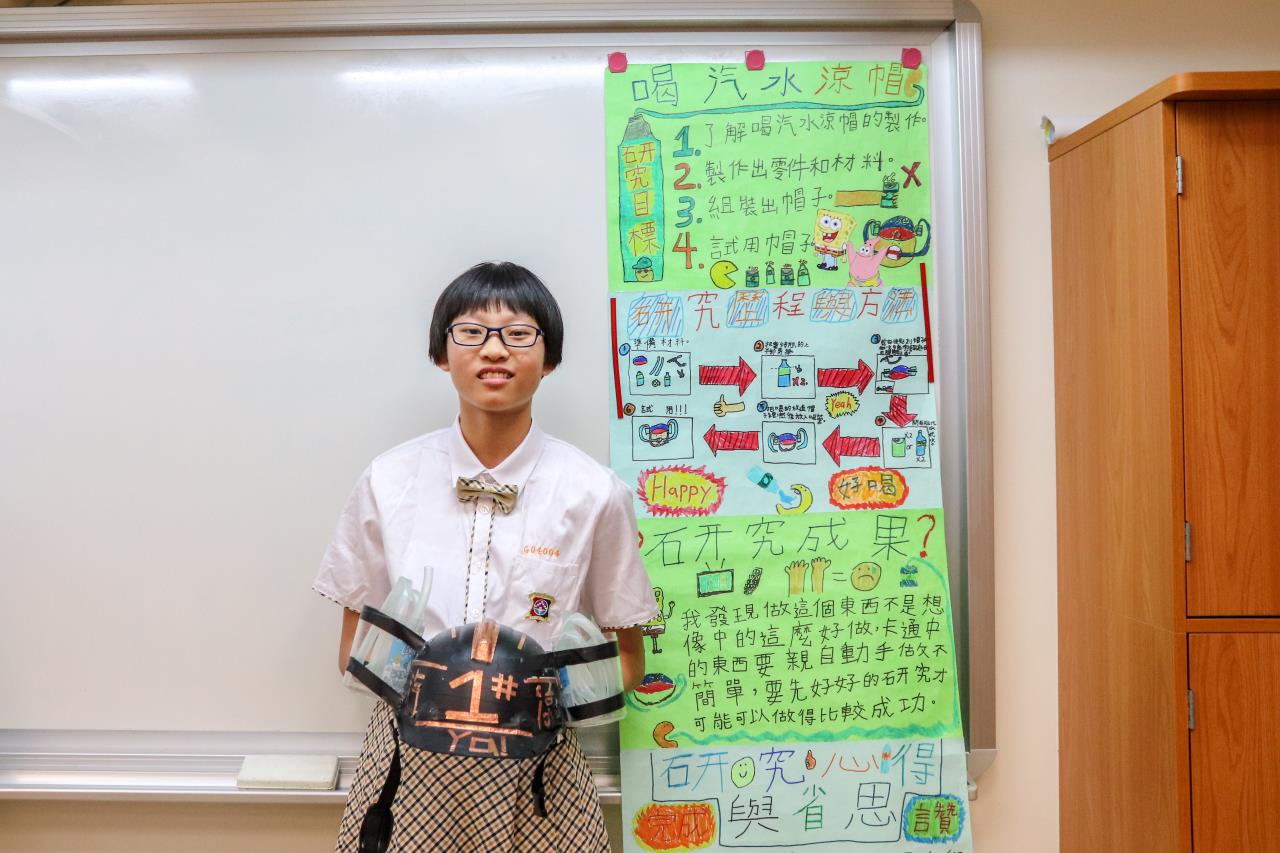 喝汽水涼帽
研究目標
1. 了解喝汽水涼帽的製作。
2. 製作出零件和材料。
3. 組裝出帽子。
4. 試用帽子
研究歷程與方法
1 準備材料。
2
3
Yeah
X2
X2
or
X2
4
5
6 試 用!!!
Happy
好喝
研究成果?
我發現做這個東西不是想
像中的這麼好做,卡通中
的東西要親自動手做不
簡單,要先好好的研究才
可能可以做得比較成功。
研究心得
與省思
完成
言贊
G04004
1#
YO!